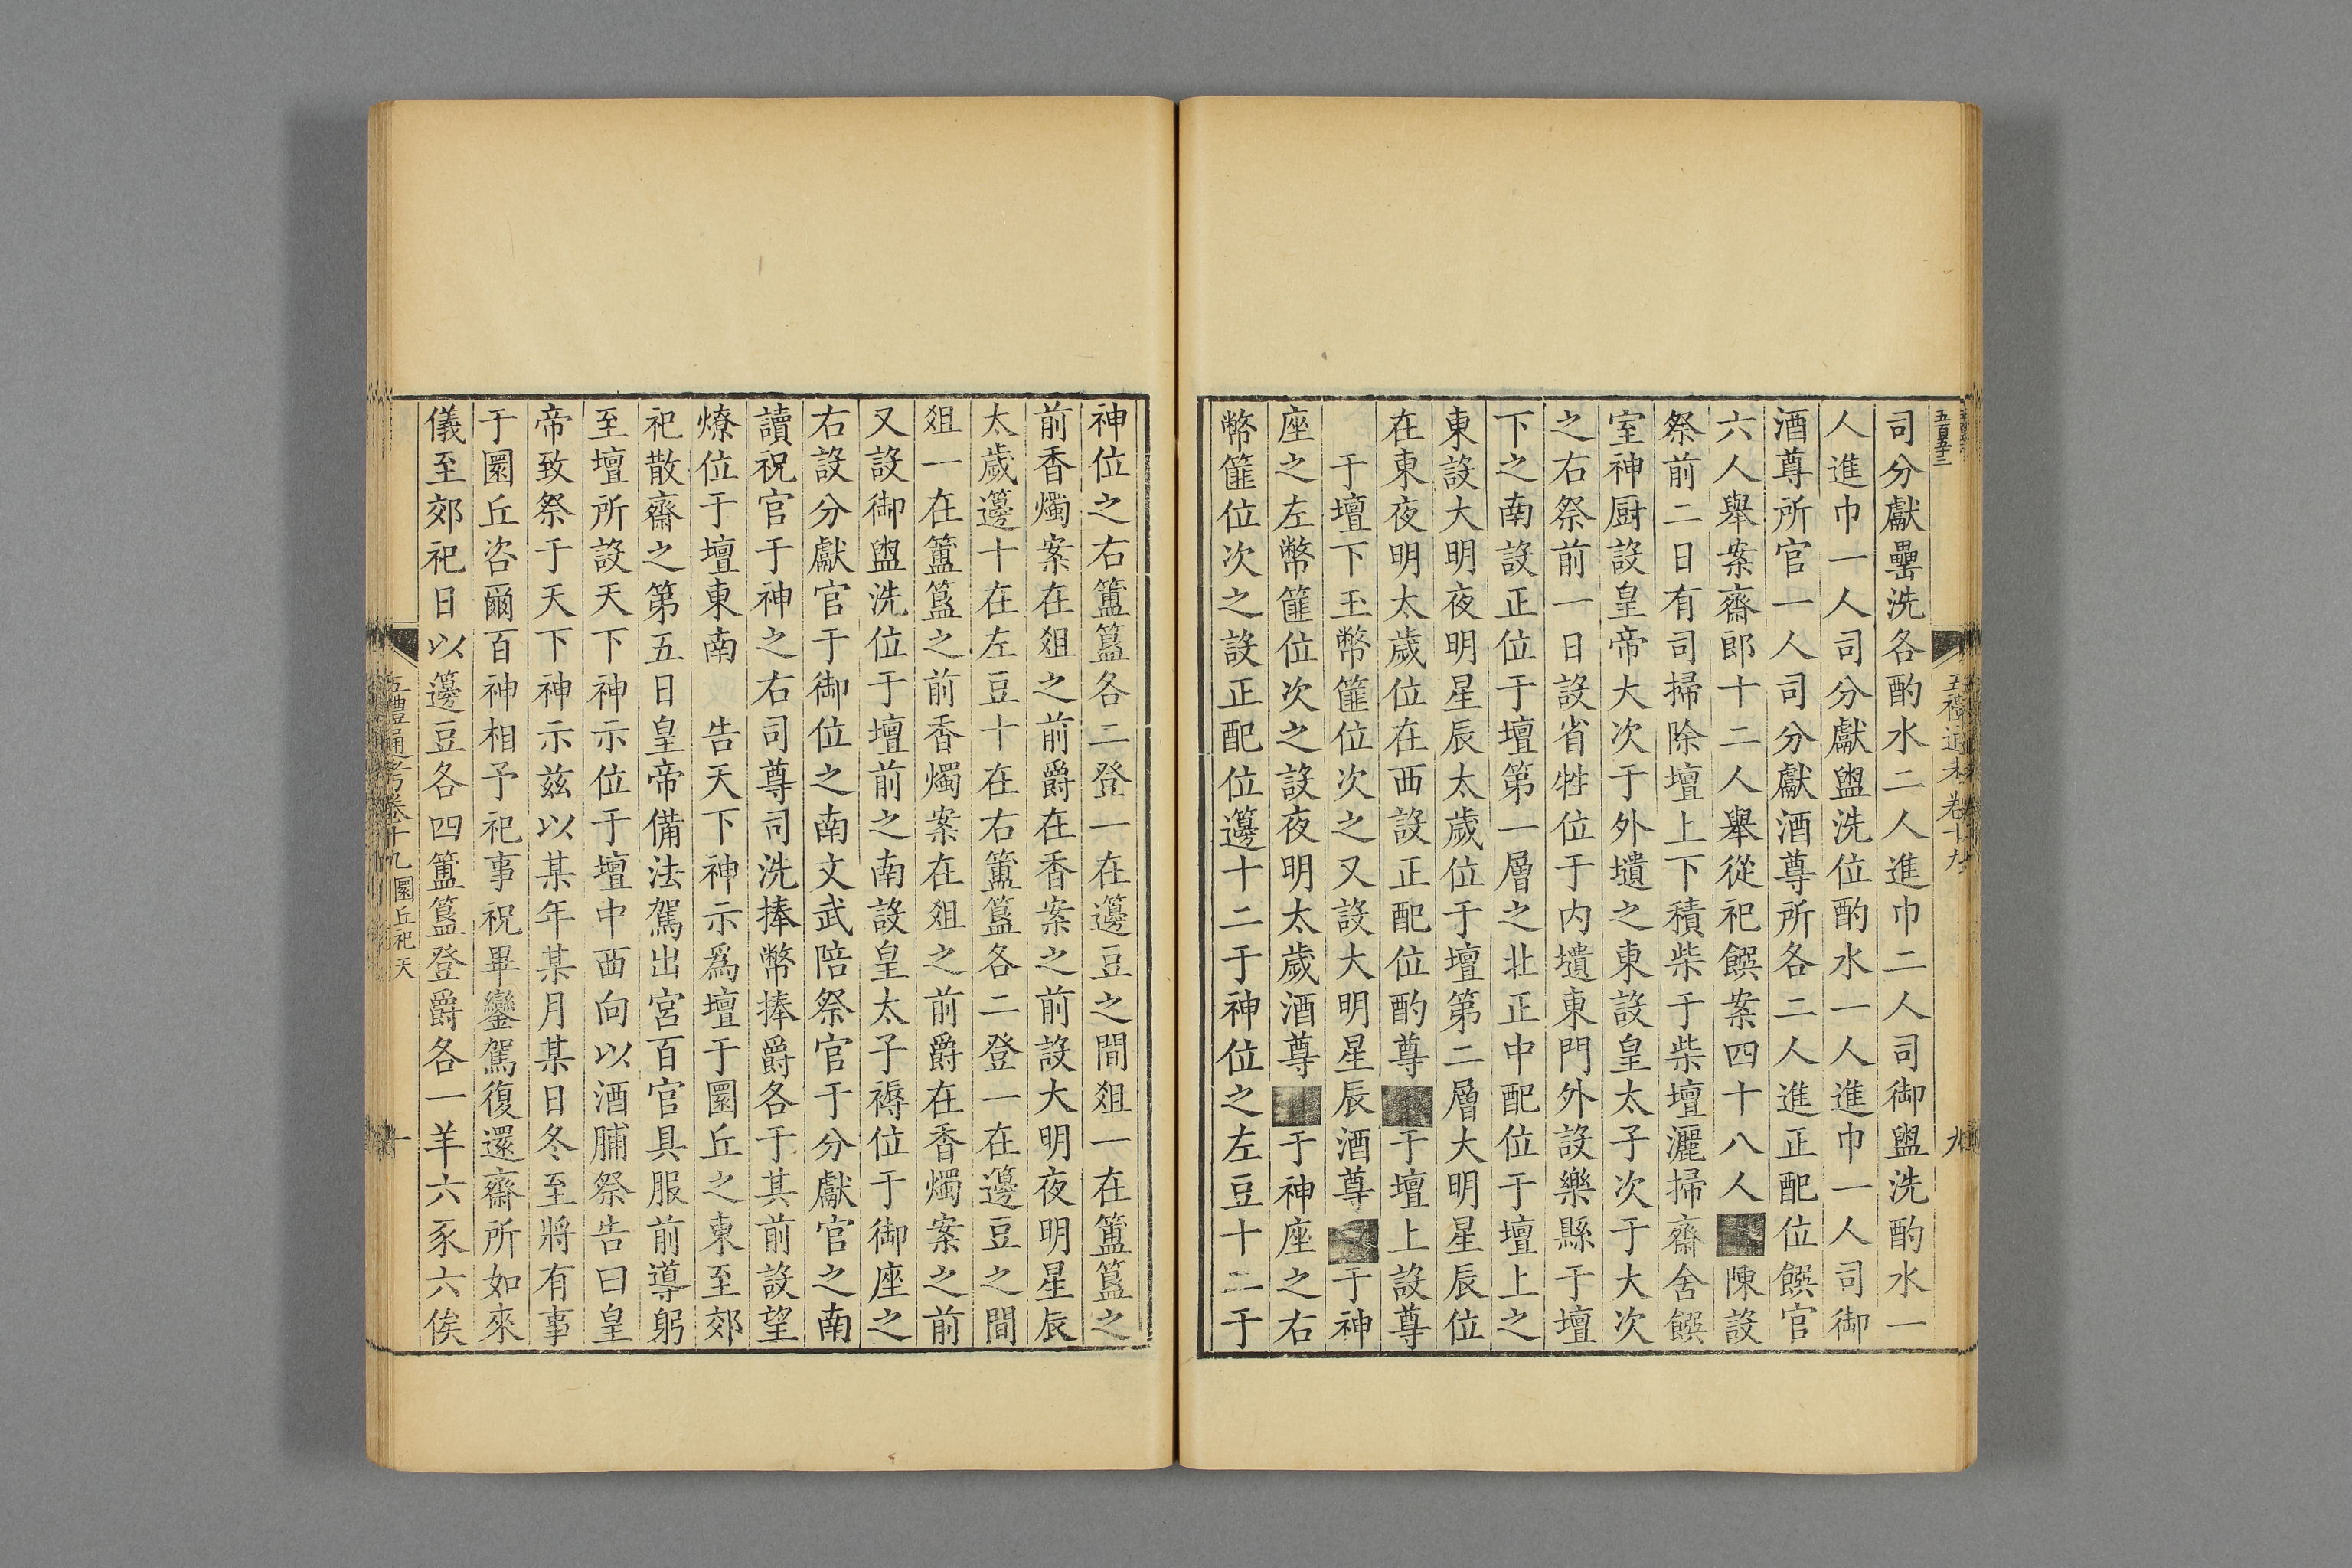 五百五十三
五禮通考卷十九
九
司分獻罍洗各酌水二人進巾二人司御盥洗酌水一
人進巾一人司分獻盥洗位酌水一人進巾一人司御
酒尊所官一人司分獻酒尊所各二人進正配位饌官
六人舉案齋郎十二人舉從祀饌案四十八人 陳設
祭前二日有司掃除壇上下積柴于柴壇灑掃齋舍饌
室神厨設皇帝大次于外壝之東設皇太子次于大次
之右祭前一日設省牲位于内壝東門外設樂縣于壇
下之南設正位于壇第一層之北正中配位于壇上之
東設大明夜明星辰太歲位于壇第二層大明星辰位
在東夜明太歲位在西設正配位酌尊 于壇上設尊
于壇下玉幣篚位次之又設大明星辰酒尊 于神
座之左幣篚位次之設夜明太歲酒尊 于神座之右
幣篚位次之設正配位籩十二于神位之左豆十二于
神位之右簠簋各二登一在籩豆之間俎一在簠簋之
前香燭案在俎之前爵在香案之前設大明夜明星辰
太歲籩十在左豆十在右簠簋各二登一在籩豆之間
俎一在簠簋之前香燭案在俎之前爵在香燭案之前
又設御盥洗位于壇前之南設皇太子褥位于御座之
右設分獻官于御位之南文武陪祭官于分獻官之南
讀祝官于神之右司尊司洗捧幣捧爵各于其前設望
燎位于壇東南 告天下神示爲壇于圜丘之東至郊
祀散齋之第五日皇帝備法駕出宮百官具服前導躬
至壇所設天下神示位于壇中西向以酒脯祭告曰皇
帝致祭于天下神示茲以某年某月某日冬至將有事
于圜丘咨爾百神相予祀事祝畢鑾駕復還齋所如來
儀至郊祀日以籩豆各四簠簋登爵各一羊六豕六俟
五禮通考卷十九 圜丘祀天
十